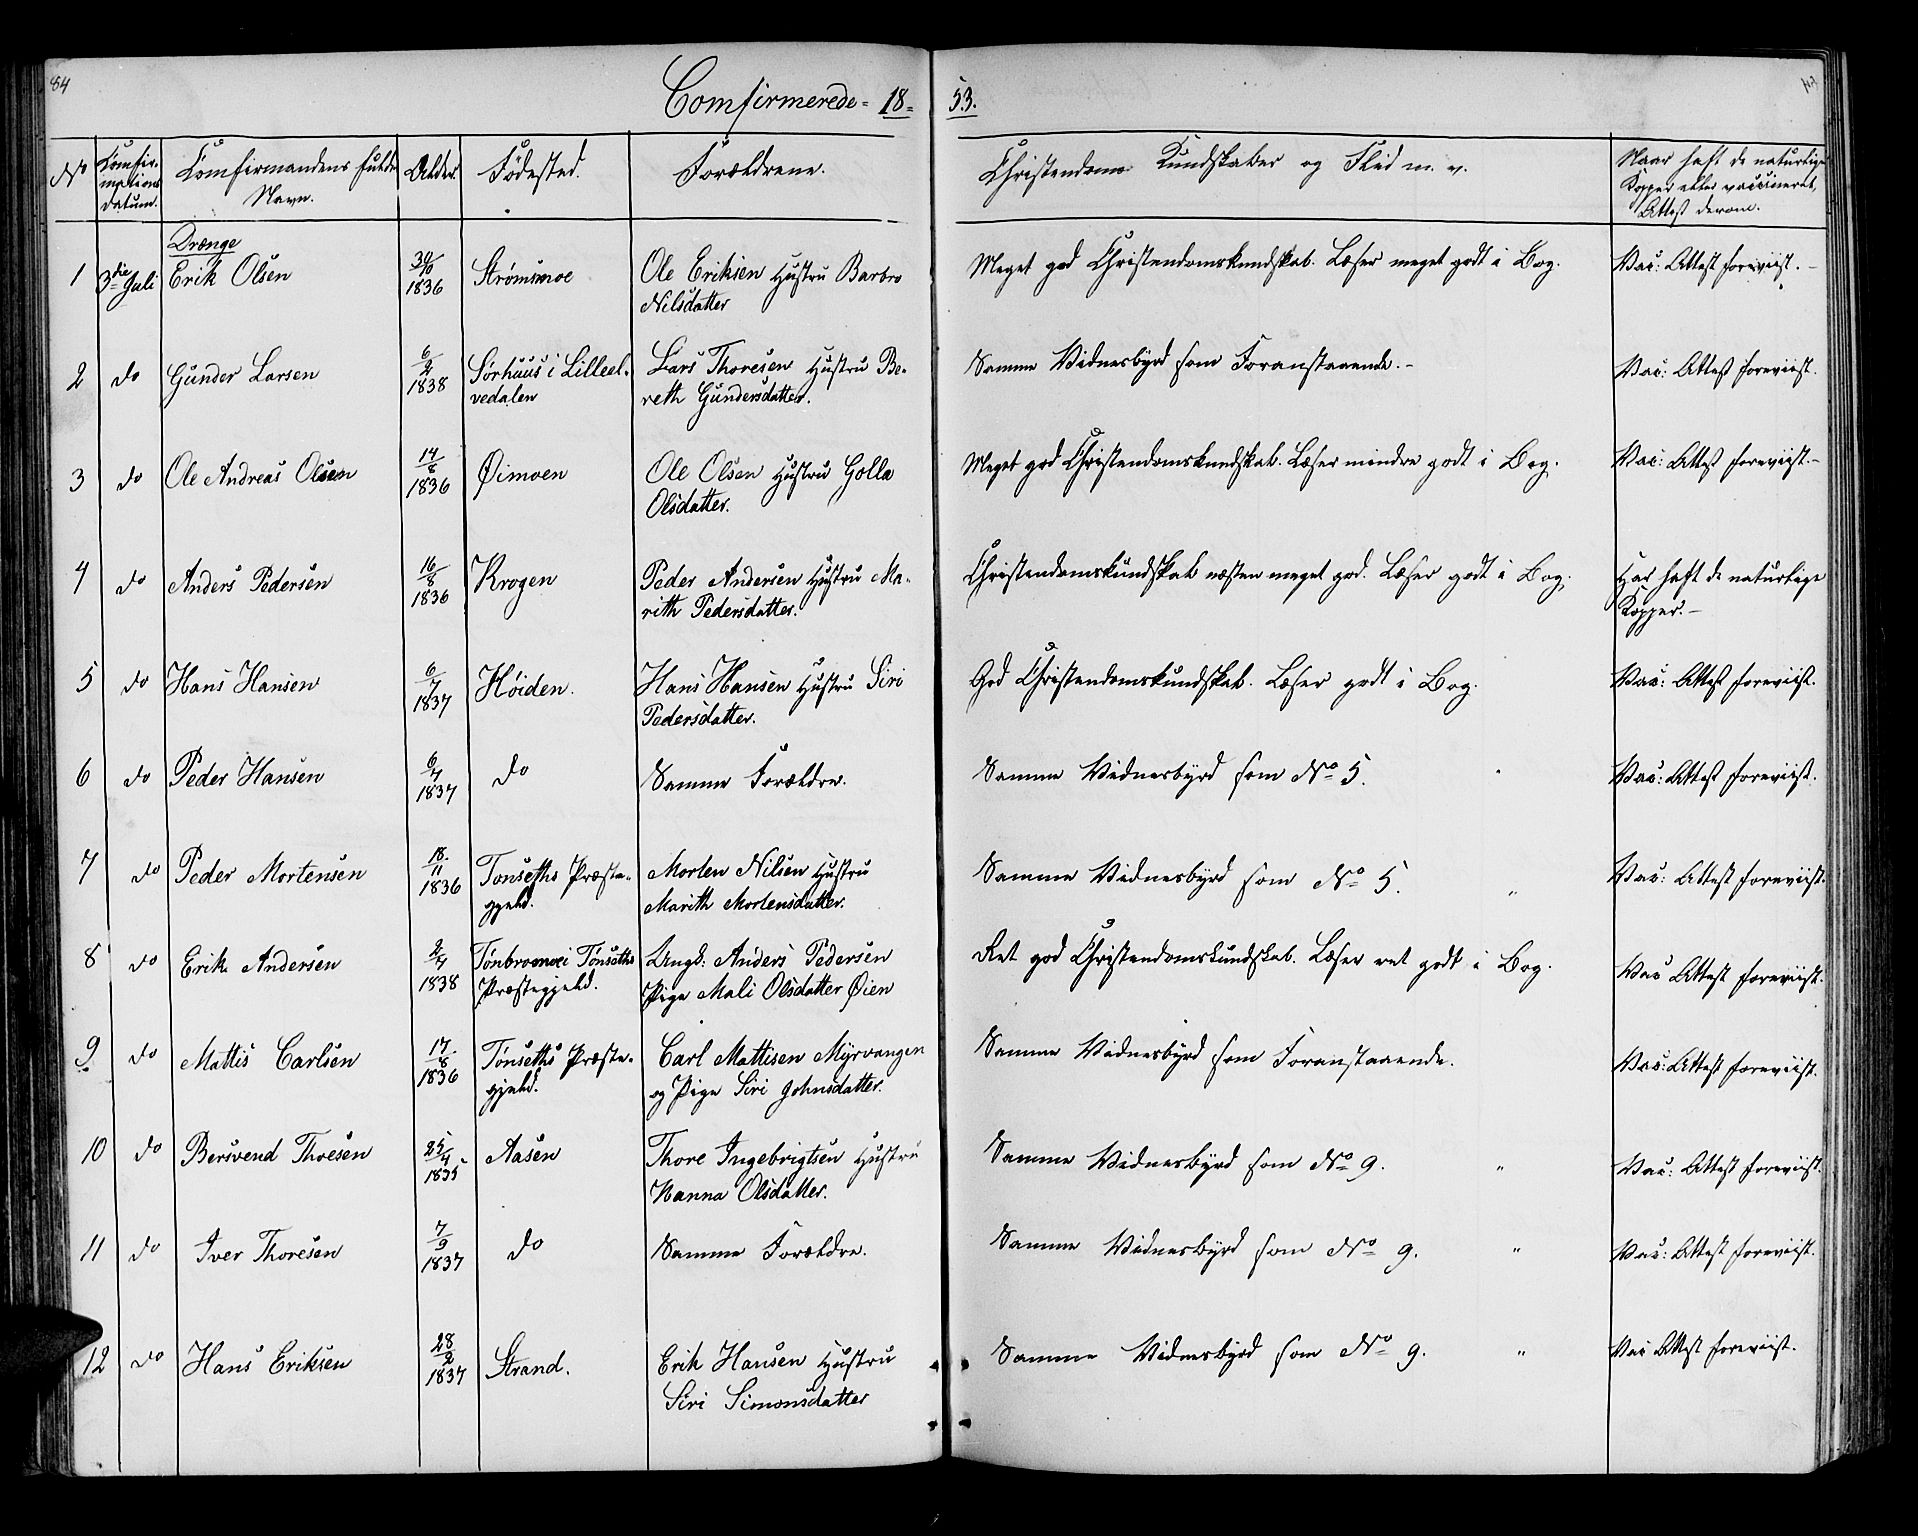 84
Comfirmerede = 18 = 53.
No
Comfir-
mations
datum.
Comfirmandens fulde
Navn.
Alder.
Fødested.
Forældrene.
Christendoms Kundskaber og Flid m. v.
Naar haft de naturlige
Kopper eller vaccineret,
Attest derom.
Drænge
1 3die Juli Erik Olsen 1836 Strømsmoe Ole Eriksen Hustru Barbro
Nilsdatter
Meget god Christendomskundskab. Læser meget godt i Bog. Vac: Attest foreviist. -
2 do Gunder Larsen 6/2 1838 Sørhuus i Lilleel-
vedalen
Lars Thoresen Hustru Be-
reth Gundersdatter.
Samme Vidnesbyrd som Foranstaaende. - Vac: Attest foreviist.
3 do Ole Andreas Olsen 14/8 1836 Øimoen Ole Olsen Hustru Golla
Olsdatter.
Meget god Christendomskundskab. Læser mindre godt i Bog. Vac: Attest foreviist. -
4 do Anders Pedersen 16/8 1836 Krogen Peder Andersen Hustru Ma-
rith Pedersdatter.
Christendomskundskab næsten meget god. Læser godt i Bog. Har haft de naturlige
Kopper. -
5 do Hans Hansen 6/7 1837 Høiden. Hans Hansen Hustru Siri
Pedersdatter.
God Christendomskundskab. Læser godt i Bog. Vac: Attest foreviist.
6 do Peder Hansen 6/7 1837 do Samme Forældre.
Samme Vidnesbyrd som No 5. Vac: Attest foreviist.
7 do Peder Mortensen 18/11 1836 Tønseths Præste-
gjeld.
Morten Nilsen Hustru
Marith Mortensdatter.
Samme Vidnesbyrd som No 5. " Vac: Attest foreviist.
8 do Erik Andersen 2/7 1838 i Tønsæths
Præstegjeld.
Ungk: Anders Pedersen
Pige Mali Olsdatter Øien
Ret god Christendomskundskab. Læser ret godt i Bog. Vac Attest foreviist.
9 do Mattis Carlsen 17/8 1836 Tønseths Præste-
gjeld.
Carl Mattisen Myrvangen
og Pige Siri Johnsdatter.
Samme Vidnesbyrd som Foranstaaende. Vac: Attest foreviist.
10 do Bersvend Thoesen 25/4 1835 Aasen Thore Ingebrigtsen Hustru
Hanna Olsdatter.
Samme Vidnesbyrd som No 9. " Vac: Attest foreviist.
11 do Iver Thoresen 7/9 1837 do Samme Forældre.
Samme Vidnesbyrd som No 9. " Vac: Attest foreviist.
12 do Hans Eriksen 28/2 1837 Strand. Erik Hansen Hustru
Siri Simonsdatter
Samme Vidnesbyrd som No 9. " Vac Attest foreviist.